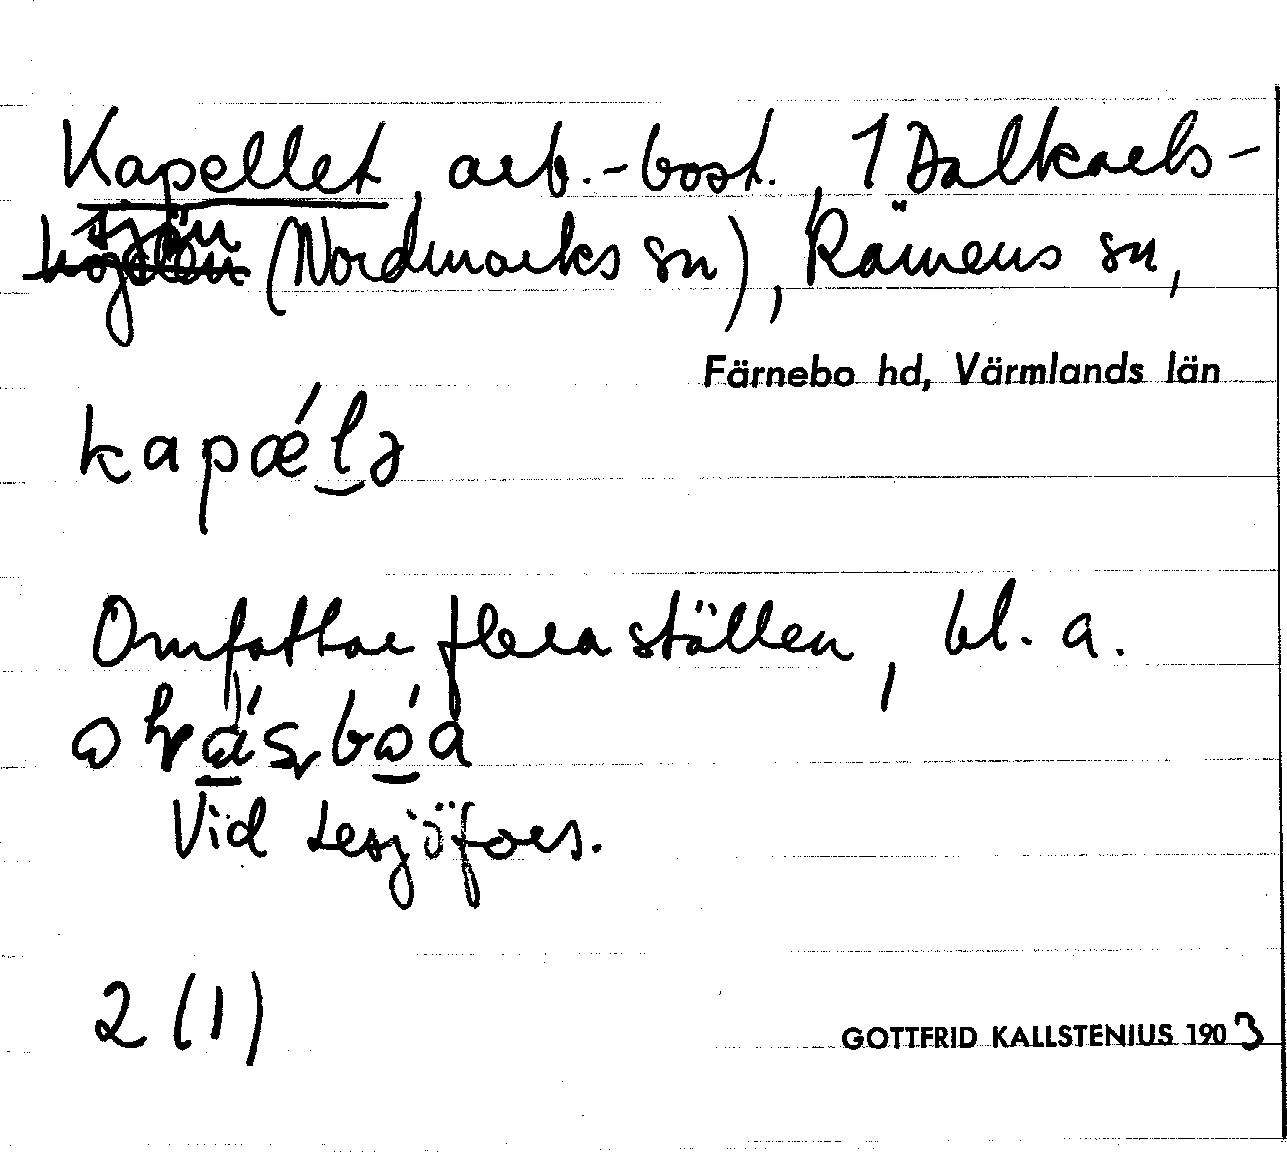 Kapellet, arb.-bost., 1 Dalkarls-
sjön (Nordmarks sn), Rämens sn,
Färnebo hd, Värmlands län
kapǽlə
Omfattar flera ställen, bl. a.
Vid Lesjöfors.
2 (1)
GOTTFRID KALLSTENIUS 1903